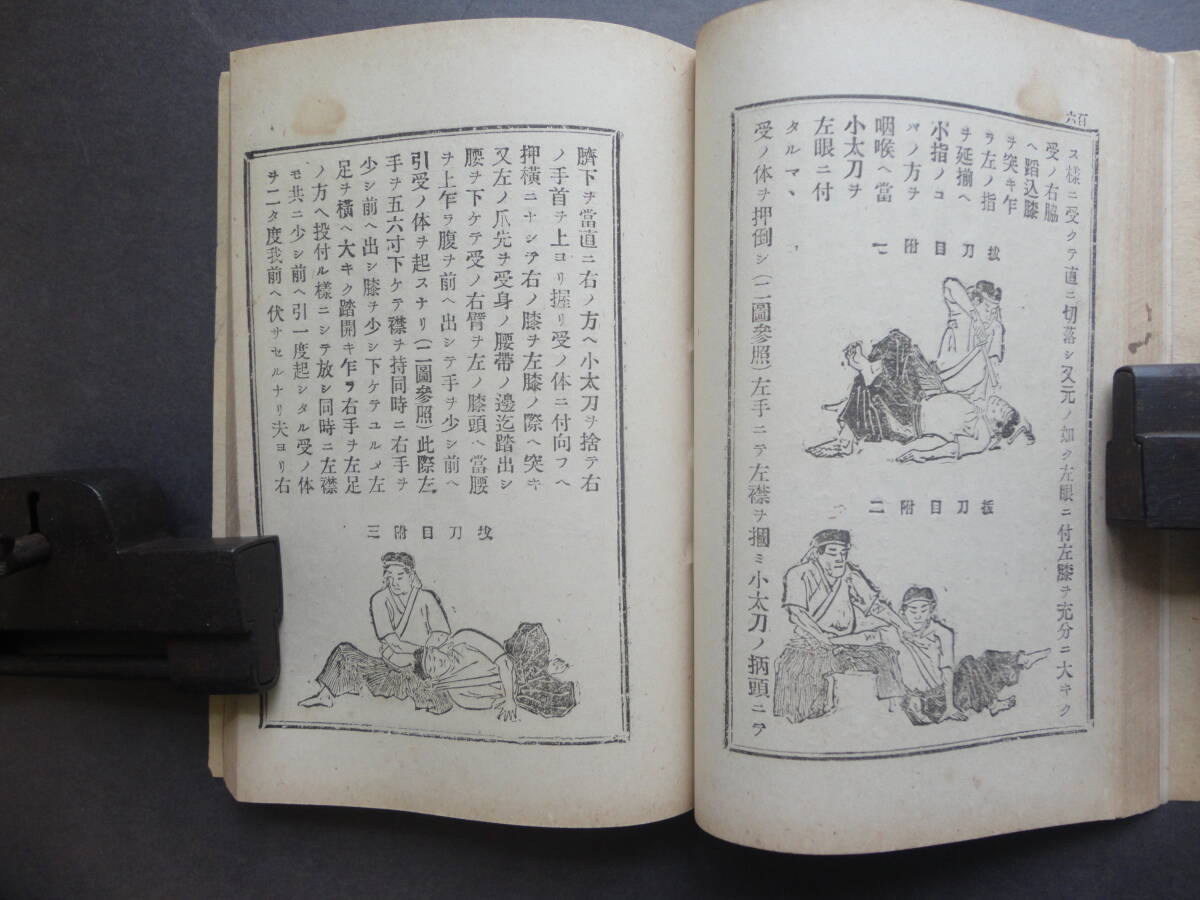 六百
ス樣ニ受クテ直ニ切落シ又元ノ如ク左眼ニ付左膝ヲ充分ニ大キク
受ノ右脇
ヘ蹈込膝
ヲ突キ乍
ラ左ノ指
ヲ延揃ヘ
小指ノコ
マノ方ヲ
咽喉ヘ當
小太刀ヲ
左眼ニ付
タルマヽ
拔刀目附一
拔刀目附二
受ノ体ヲ押倒シ(二圖參照)左手ニテ左襟ヲ摑ミ小太刀ノ柄頭ニテ
臍下ヲ當直ニ右ノ方ヘ小太刀ヲ捨テ右
ノ手首ヲ上ヨリ握リ受ノ体ニ付向フヘ
押橫ニナシテ右ノ膝ヲ左膝ノ際ヘ突キ
又左ノ爪先ヲ受身ノ腰帶ノ邊迄踏出シ
腰ヲ下ケテ受ノ右臂ヲ左ノ膝頭ヘ當腰
ヲ上乍ラ腹ヲ前ヘ出シテ手ヲ少シ前ヘ
引受ノ体ヲ起スナリ(二圖參照)此際左
手ヲ五六寸下ケテ襟ヲ持同時ニ右手ヲ
少シ前ヘ出シ膝ヲ少シ下ケテユルメ左
足ヲ橫ヘ大キク踏開キ乍ラ右手ヲ左足
ノ方ヘ投付ル樣ニシテ放シ同時ニ左襟
モ共ニ少シ前ヘ引一度起シタル受ノ体
ヲ二タ度我前ヘ伏サセルナリ夫ヨリ右
拔刀目附三